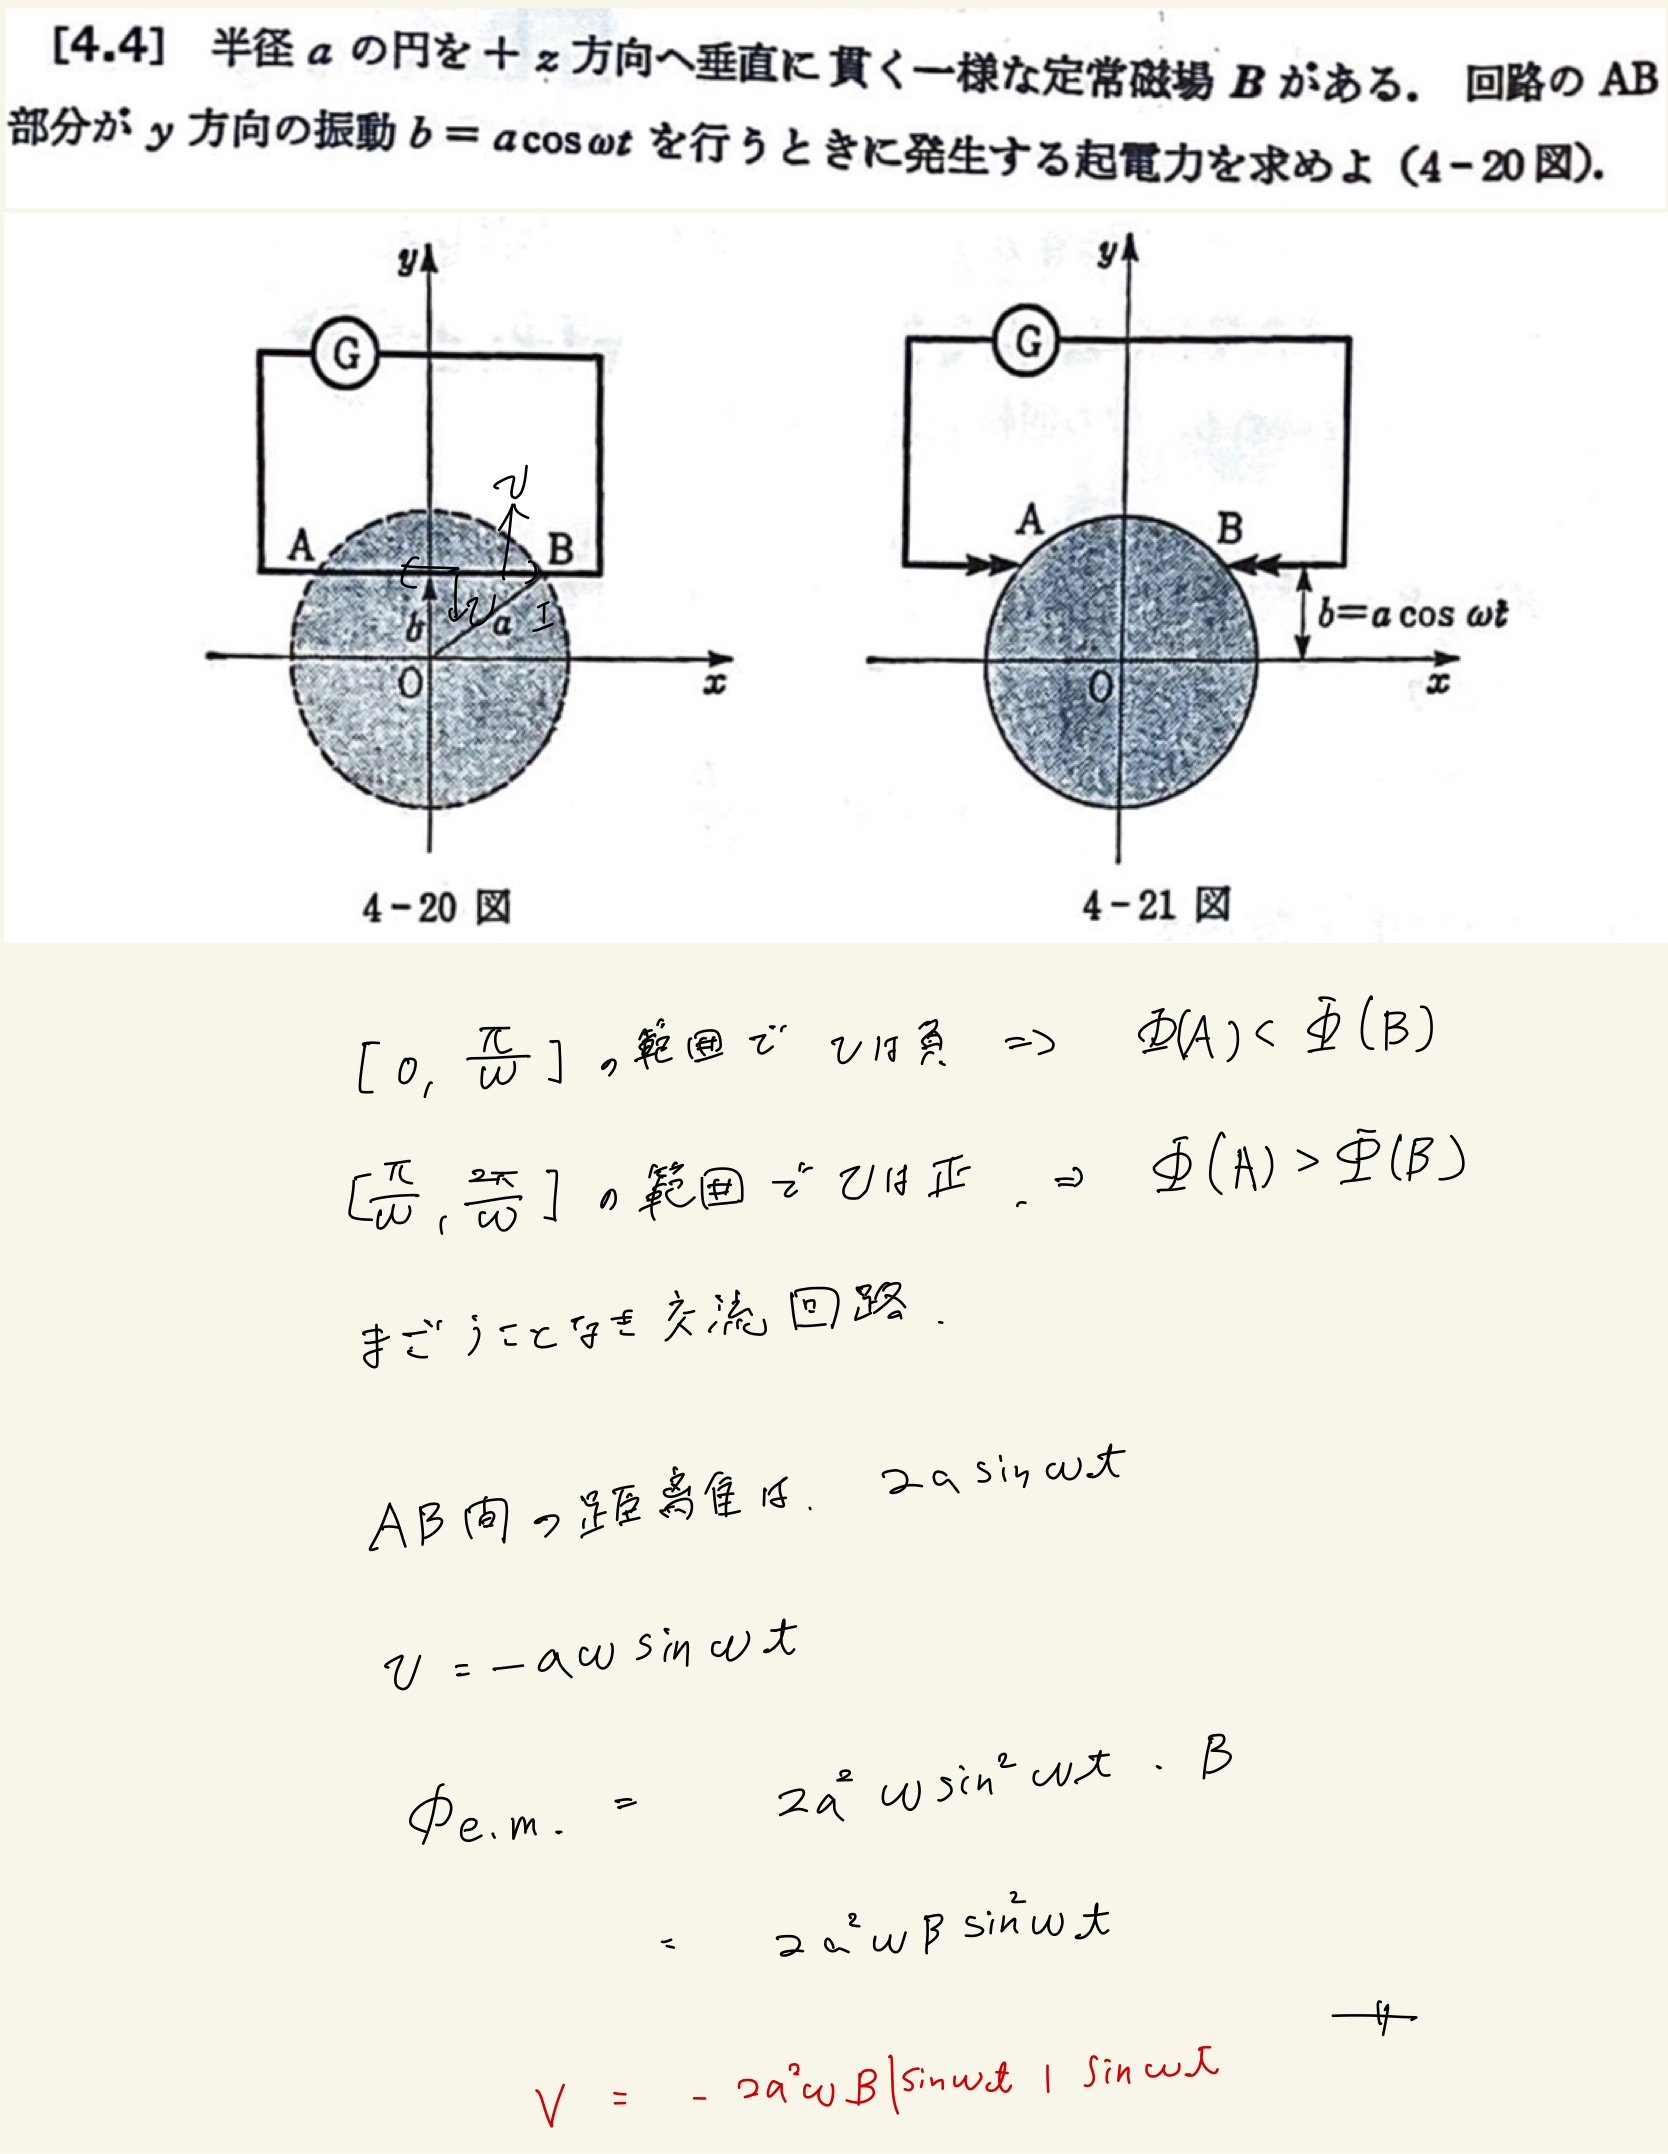 [4.4] 半径 a の円を +z 方向へ垂直に貫く一様な定常磁場 B がある. 回路の AB
部分が y 方向の振動 b = a cos ωt を行うときに発生する起電力を求めよ (4-20 図).
y
G
v
A
B
b
v
a
I
O
x
4-20 図
y
G
A
B
b=a cos ωt
O
x
4-21 図
[0, π/ω] の範囲で vは負 ⇒ Φ(A) < Φ(B)
[π/ω, 2π/ω] の範囲で vは正. ⇒ Φ(A) > Φ(B)
まごうことなき交流回路.
AB間の距離は. 2a sin ωt
v = -aω sin ωt
φe.m. = 2a² ω sin² ωt · B
= 2a²ωB sin²ωt
V = - 2a²ωB|sinωt| sinωt